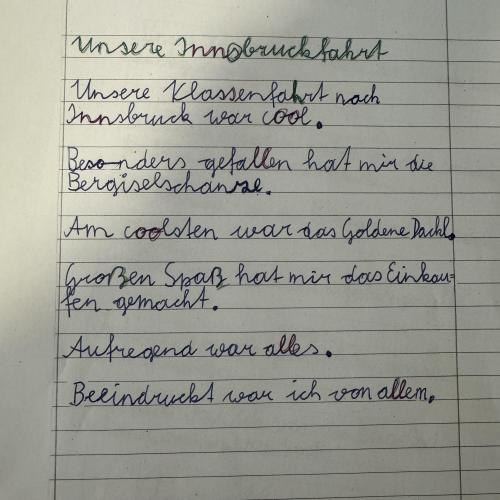 Unsere Innsbruckfahrt
Unsere Klassenfahrt nach
Innsbruck war cool.
Besonders gefallen hat mir die
Bergiselschanze.
Am coolsten war das Goldene Dachl.
Großen Spaß hat mir das Einkau=
fen gemacht.
Aufregend war alles.
Beeindruckt war ich von allem.